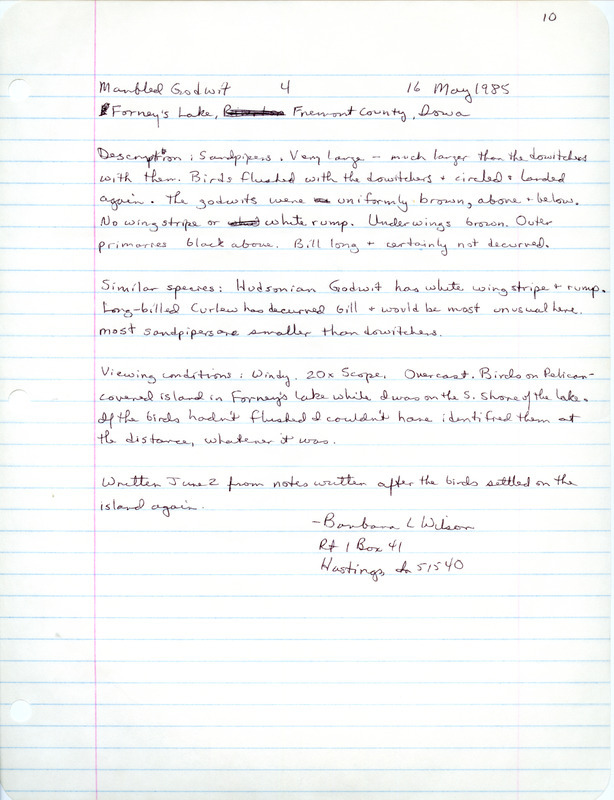 10
Marbled Godwit 4 16 May 1985
Forney's Lake, Fremont County, Iowa
Description: Sandpipers. Very large - much larger than the dowitchers
with them. Birds flushed with the dowitchers + circled + landed
again. The godwits were uniformly brown, above + below.
No wing stripe or white rump. Underwings brown. Outer
primaries black above. Bill long + certainly not decurved.
Similar species: Hudsonian Godwit has white wing stripe + rump.
Long-billed Curlew has decurved bill + would be most unusual here.
most sandpipers are smaller than dowitchers.
Viewing conditions: Windy. 20x Scope. Overcast. Birds on Pelican-
covered island in Forney's Lake while I was on the S. Shore of the lake.
If the birds hadn't flushed I couldn't have identified them at
the distance, whatever it was.
Written June 2 from notes written after the birds settled on the
island again.
-Barbara L Wilson
Rt 1 Box 41
Hastings, Ia 51540